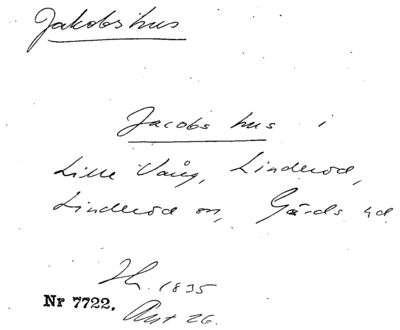 Jakobshus
Jacobs hus i
Lille Vång, Linderöd,
Linderöd sn, Gärds hd
Hf. 1835
Nr 7722. Avt 26.